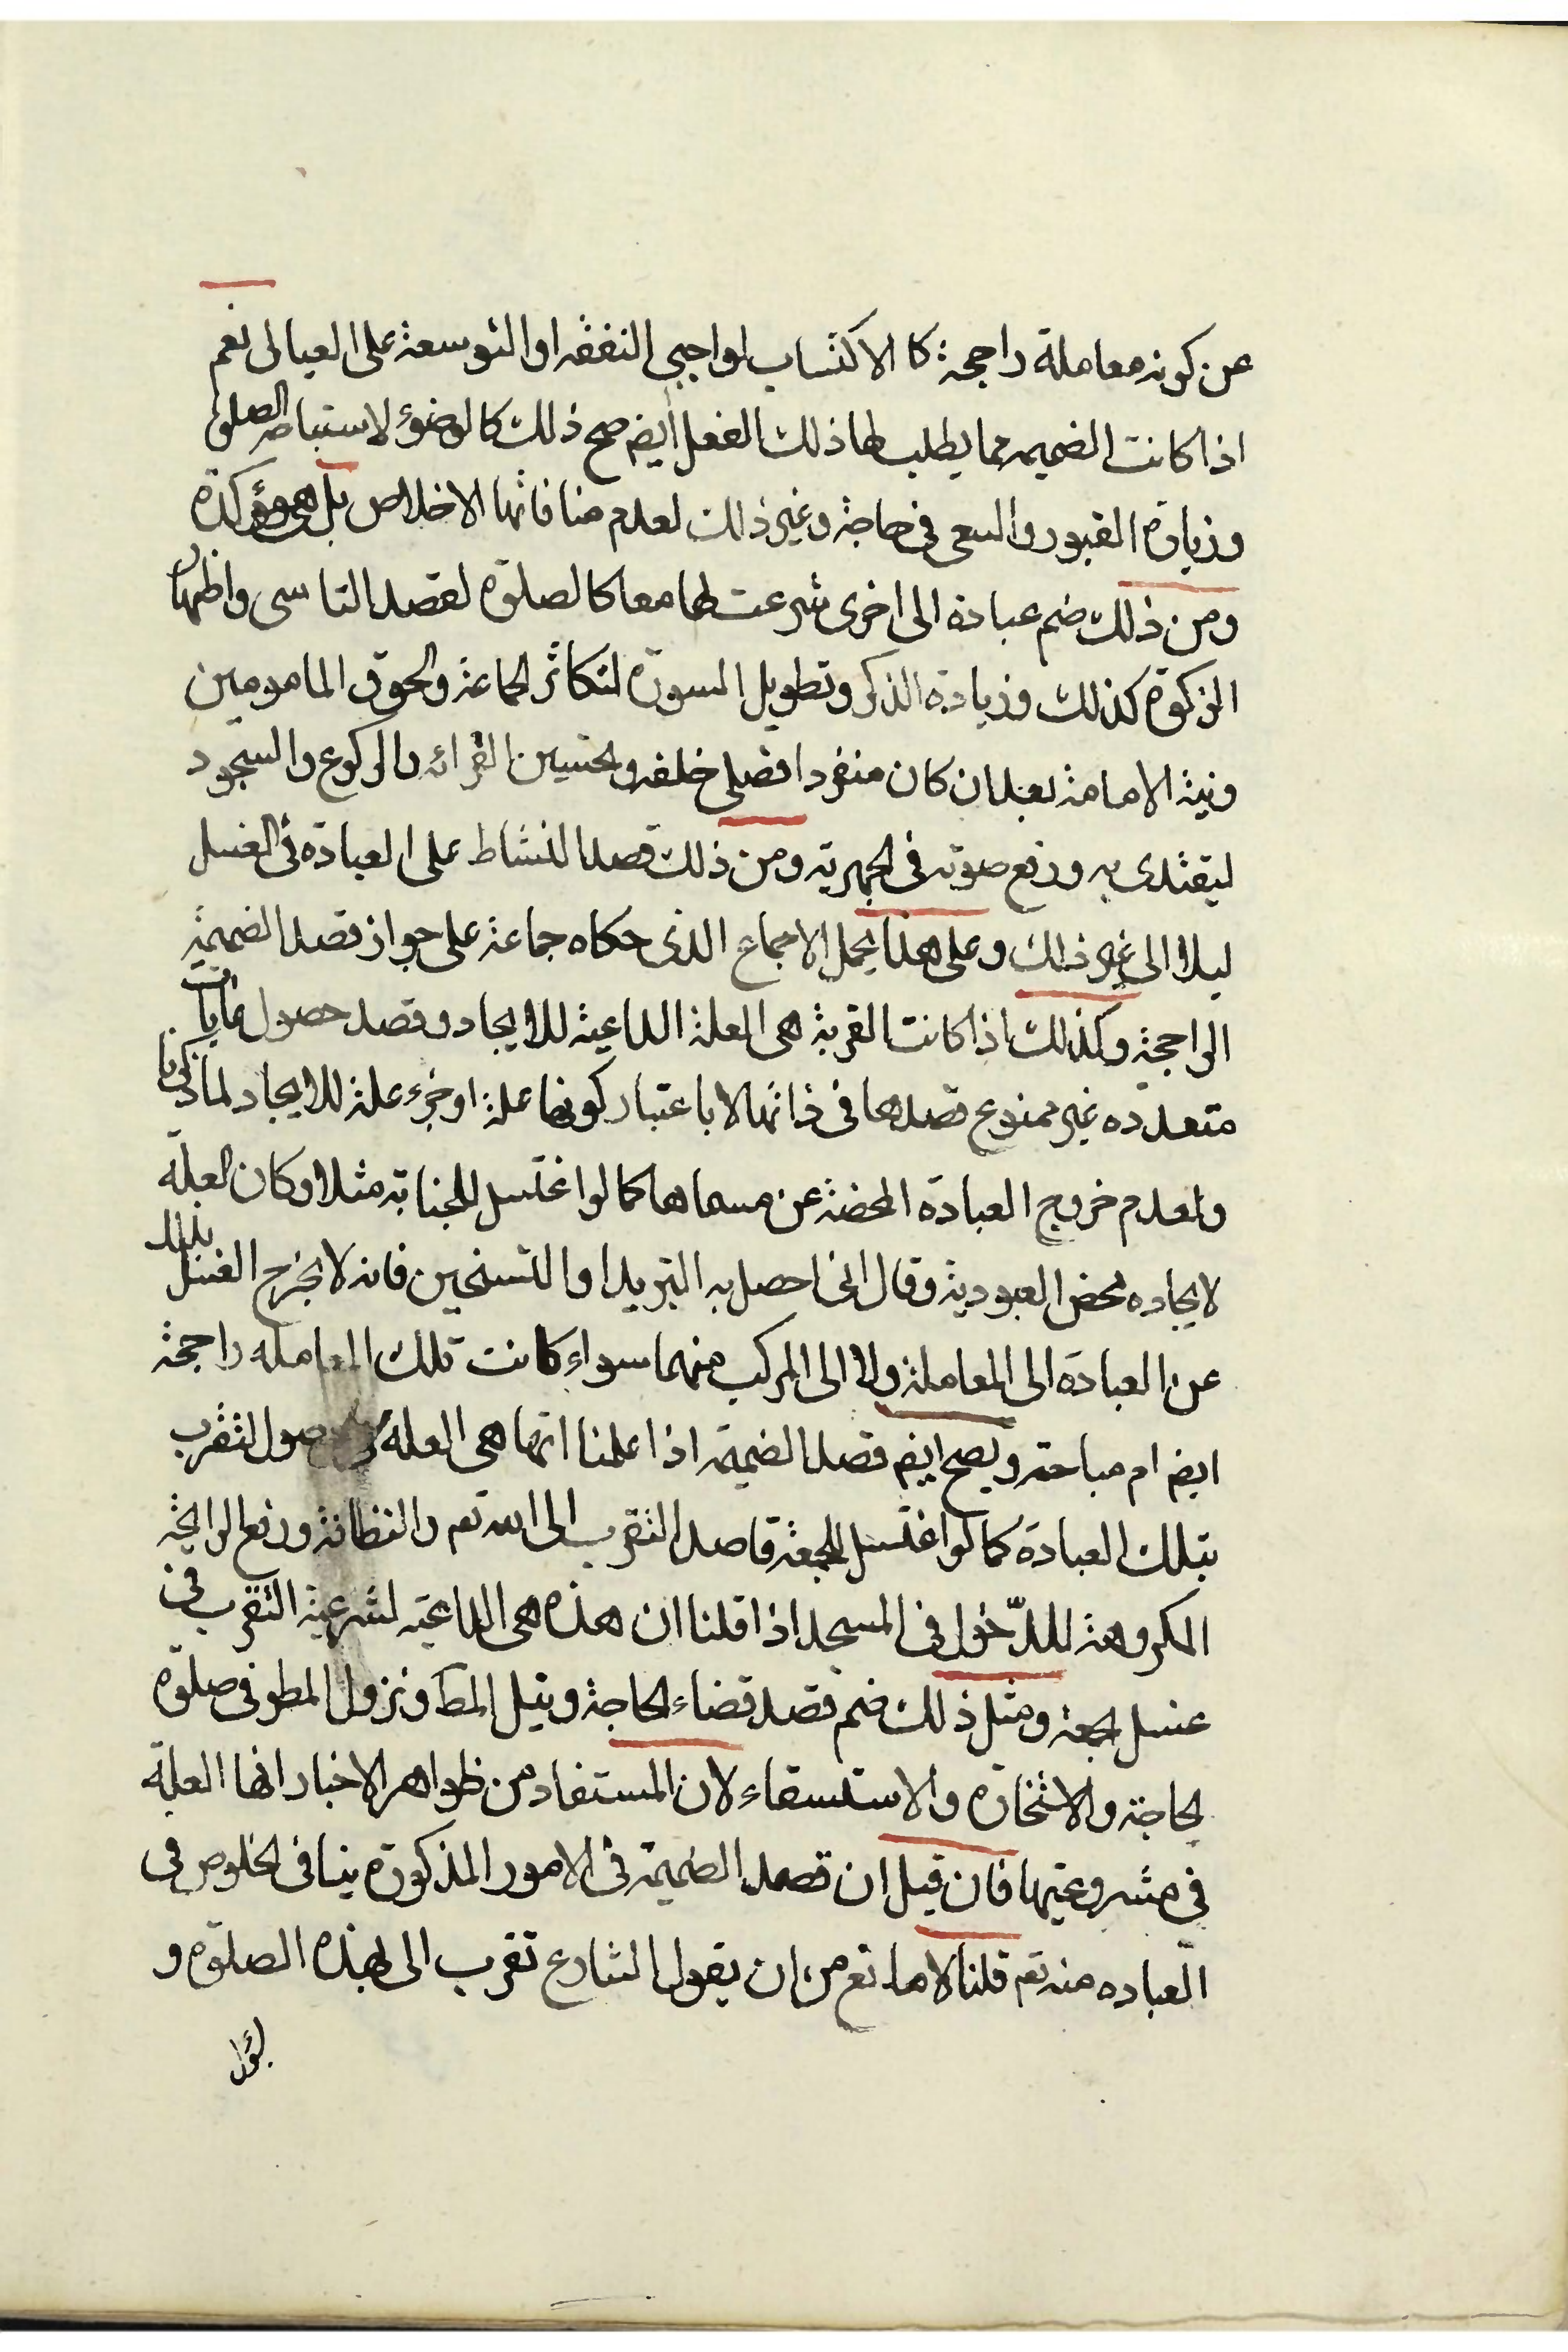 عن كونه معاملة راجحة كالاكتساب لواجبي النفقه او التوسعة على العيال نعم
اذا كانت الضميمه مما يطلب لها ذلك الفعل أيضم صح ذلك كالوضوء لاستباحه الصلوة
وزيارة القبور والسعى في حاجة وغير ذلك لعدم منافاتها الاخلاص بل هى مؤكدة
ومن ذلك ضم عبادة الى اخرى شرعت لها معا كالصلوة لقصد التاسى واظهار
الزكوة كذلك وزيادة الذكر وتطويل السورة لتكاثر الجماعة ولحوق المامومين
ونية الامامة بعد ان كان منفردا فصلى خلفه وتحسين القرائه والركوع والسجود
ليقتدى به ورفع صوته فى الجهرية ومن ذلك قصد النشاط على العبادة فى الغسل
ليلا الى غير ذلك وعلى هذا يحمل الاجماع الذى حكاه جماعة على جواز قصد الضميمة
الراجحة وكذلك اذا كانت القربة هى العلة الداعية للايجاد وقصد حصول غايات
متعدده غير ممنوع قصدها فى ذاتها لا باعتبار كونها علة او جزء علة للايجاد لما ذكرنا
ولعدم خروج العبادة المحضة عن مسماها كما لو اغتسل للجنابة مثلا وكان العلة
لايجاده محض العبودية وقال انى احصل به التبريد او التسخين فانه لا يخرج الغسل بذلك
عن العبادة الى المعاملة ولا الى المركب منهما سواء كانت تلك المعامله راجحة
ايضم ام مباحة ويصح ايضم قصد الضميمة اذا علمنا انها هى العلة حصول التقرب
بتلك العبادة كما لو اغتسل للجمعة قاصد التقرب الى الله تعم والنظافة ورفع الرايحة
المكروهة للدّخول فى المسجد اذا قلنا ان هذه هى الداعية لشرعية التقرب فى
غسل الجمعة ومثل ذلك ضم قصد قضاء الحاجة ونيل المط ونزول المطر فى صلوة
الحاجة والاستخارة والاستسقاء لان المستفاد من ظواهر الاخبار انها العلة
فى مشروعيتها فان قيل ان قصد الضميمة فى الامور المذكورة ينافى الخلوص فى
العباده منه تعم قلنا لا مانع من ان يقول الشارع تقرب الى بهذه الصلوة و